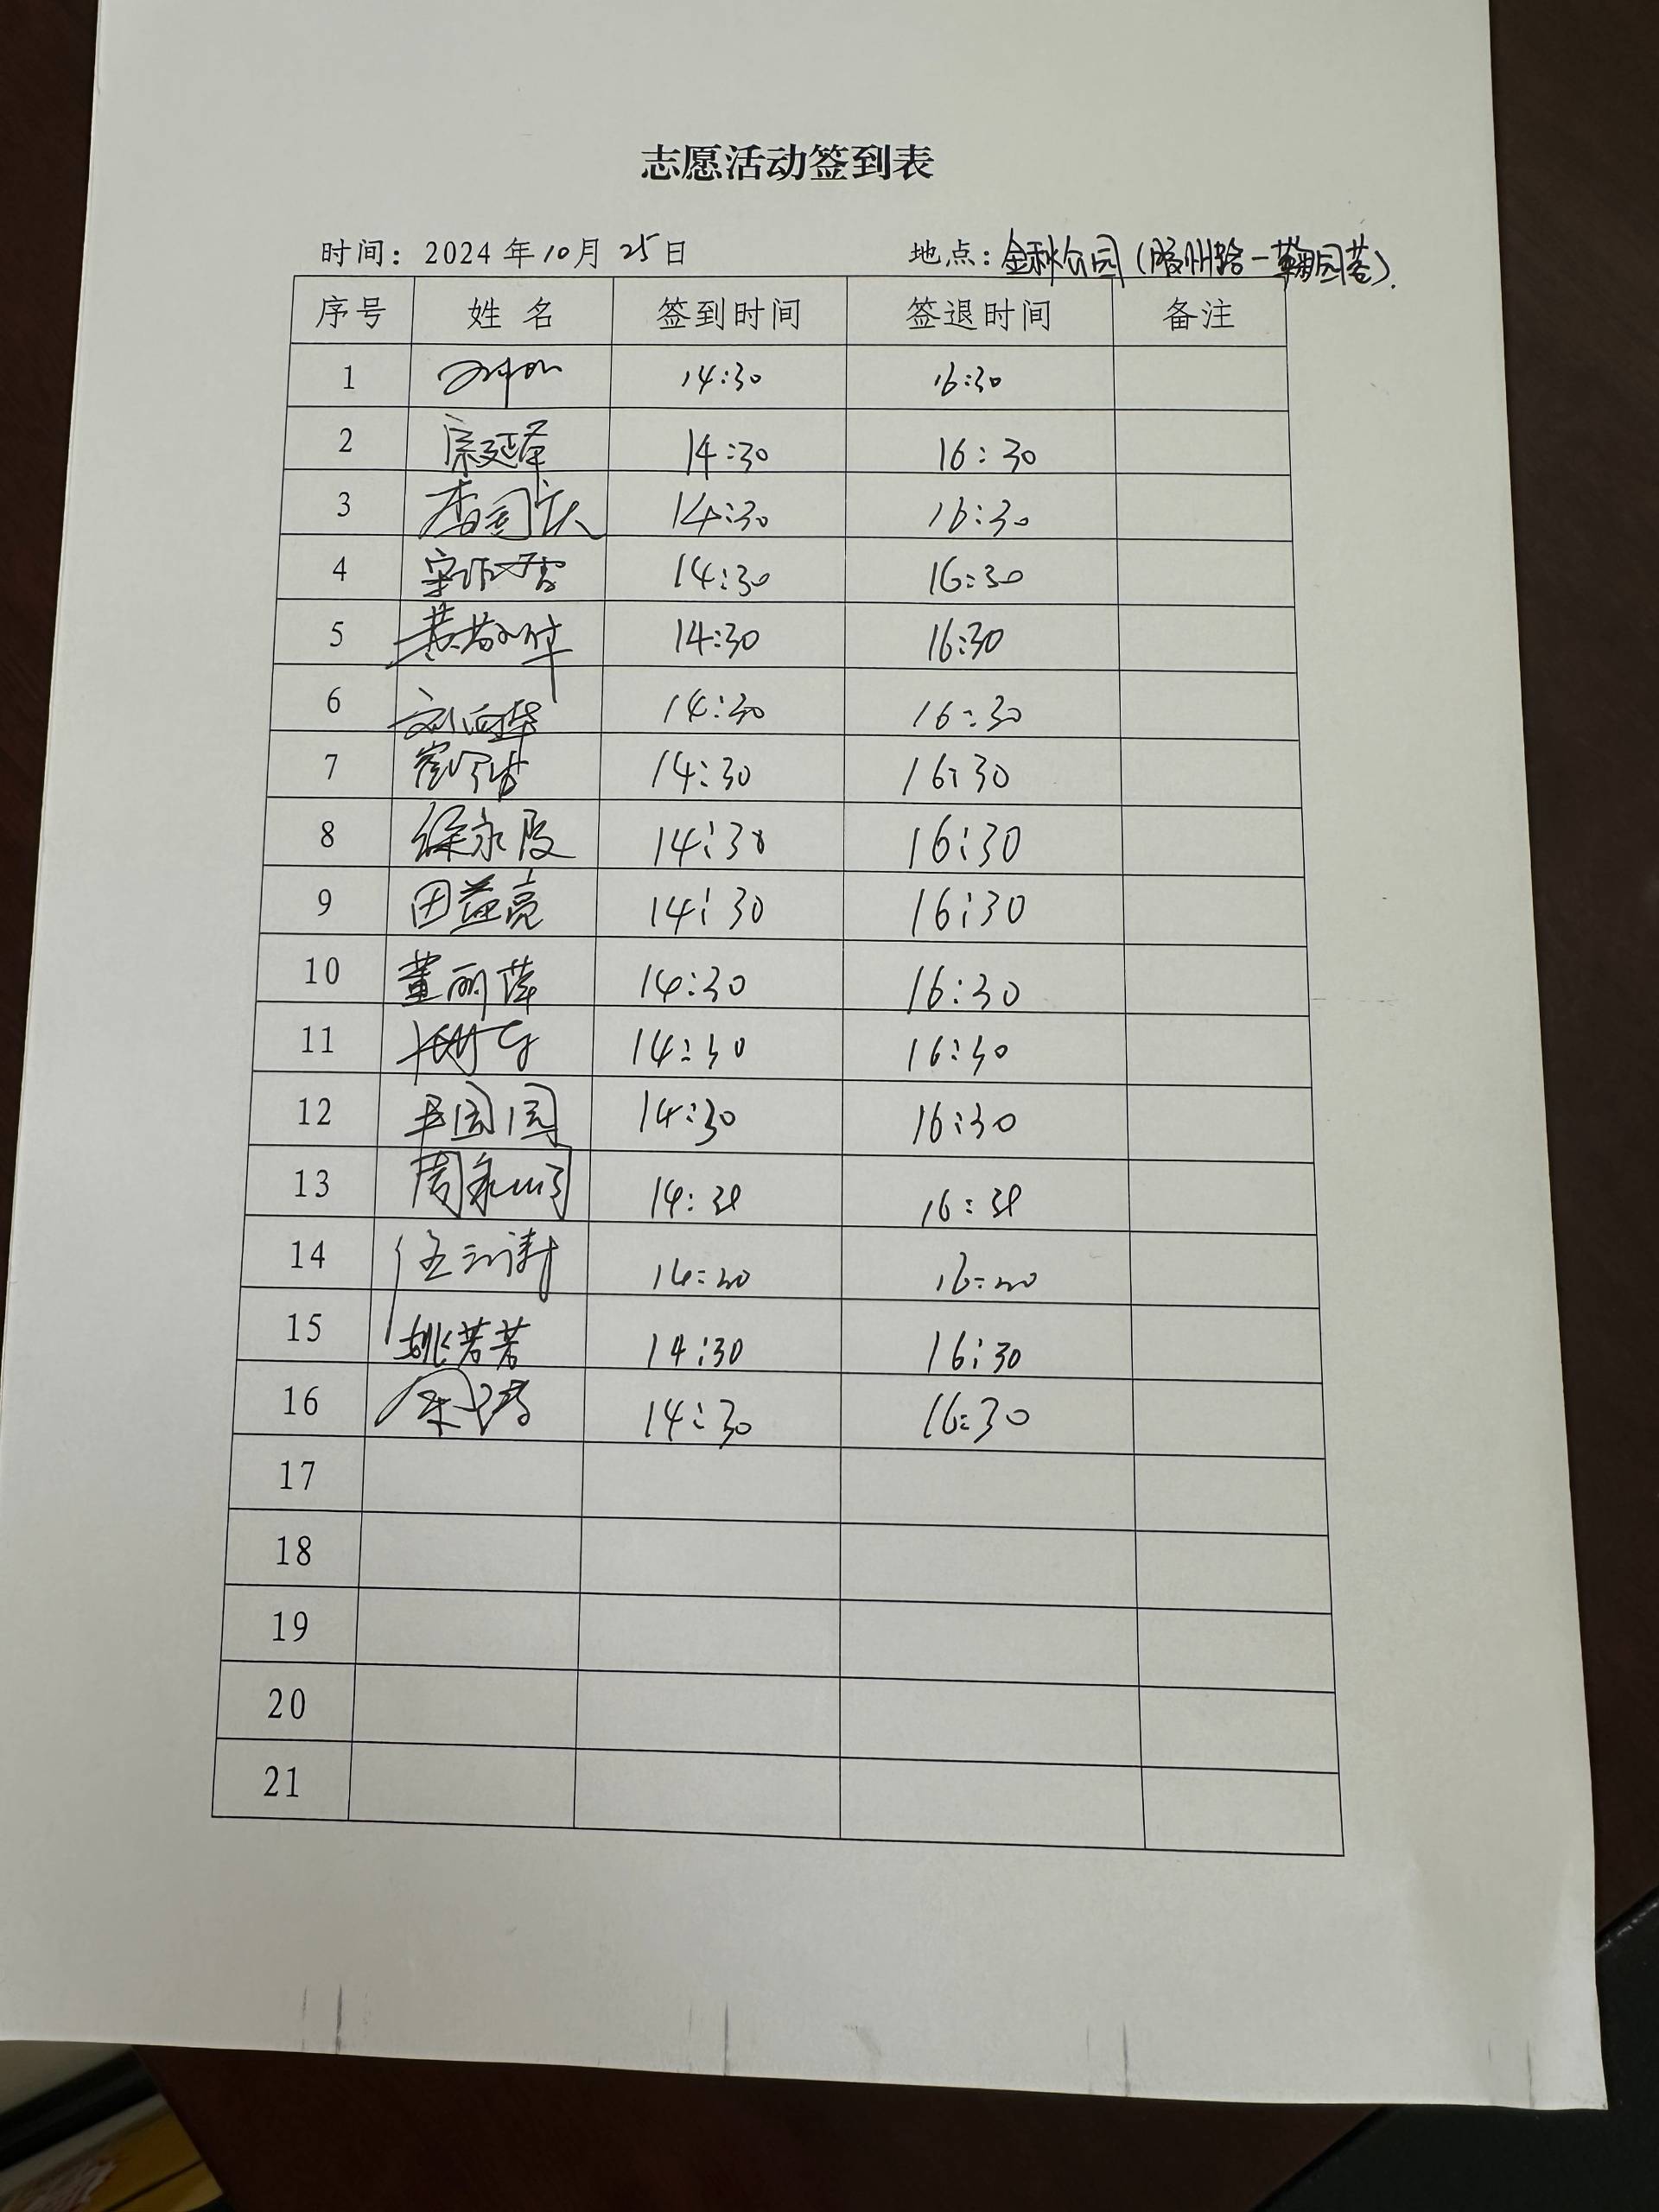 志愿活动签到表
时间：2024年10月25日 地点：金秋公园（胶州路一鞠园巷）.
序号 姓名 签到时间 签退时间 备注
1 14:30 16:30
2 14:30 16:30
3 14:30 16:30
4 14:30 16:30
5 14:30 16:30
6 14:30 16:30
7 14:30 16:30
8 徐永段 14:30 16:30
9 田益亮 14:30 16:30
10 董丽萍 14:30 16:30
11 14:30 16:30
12 14:30 16:30
13 14:30 16:30
14 14:30 16:30
15 姚若若 14:30 16:30
16 14:30 16:30
17
18
19
20
21